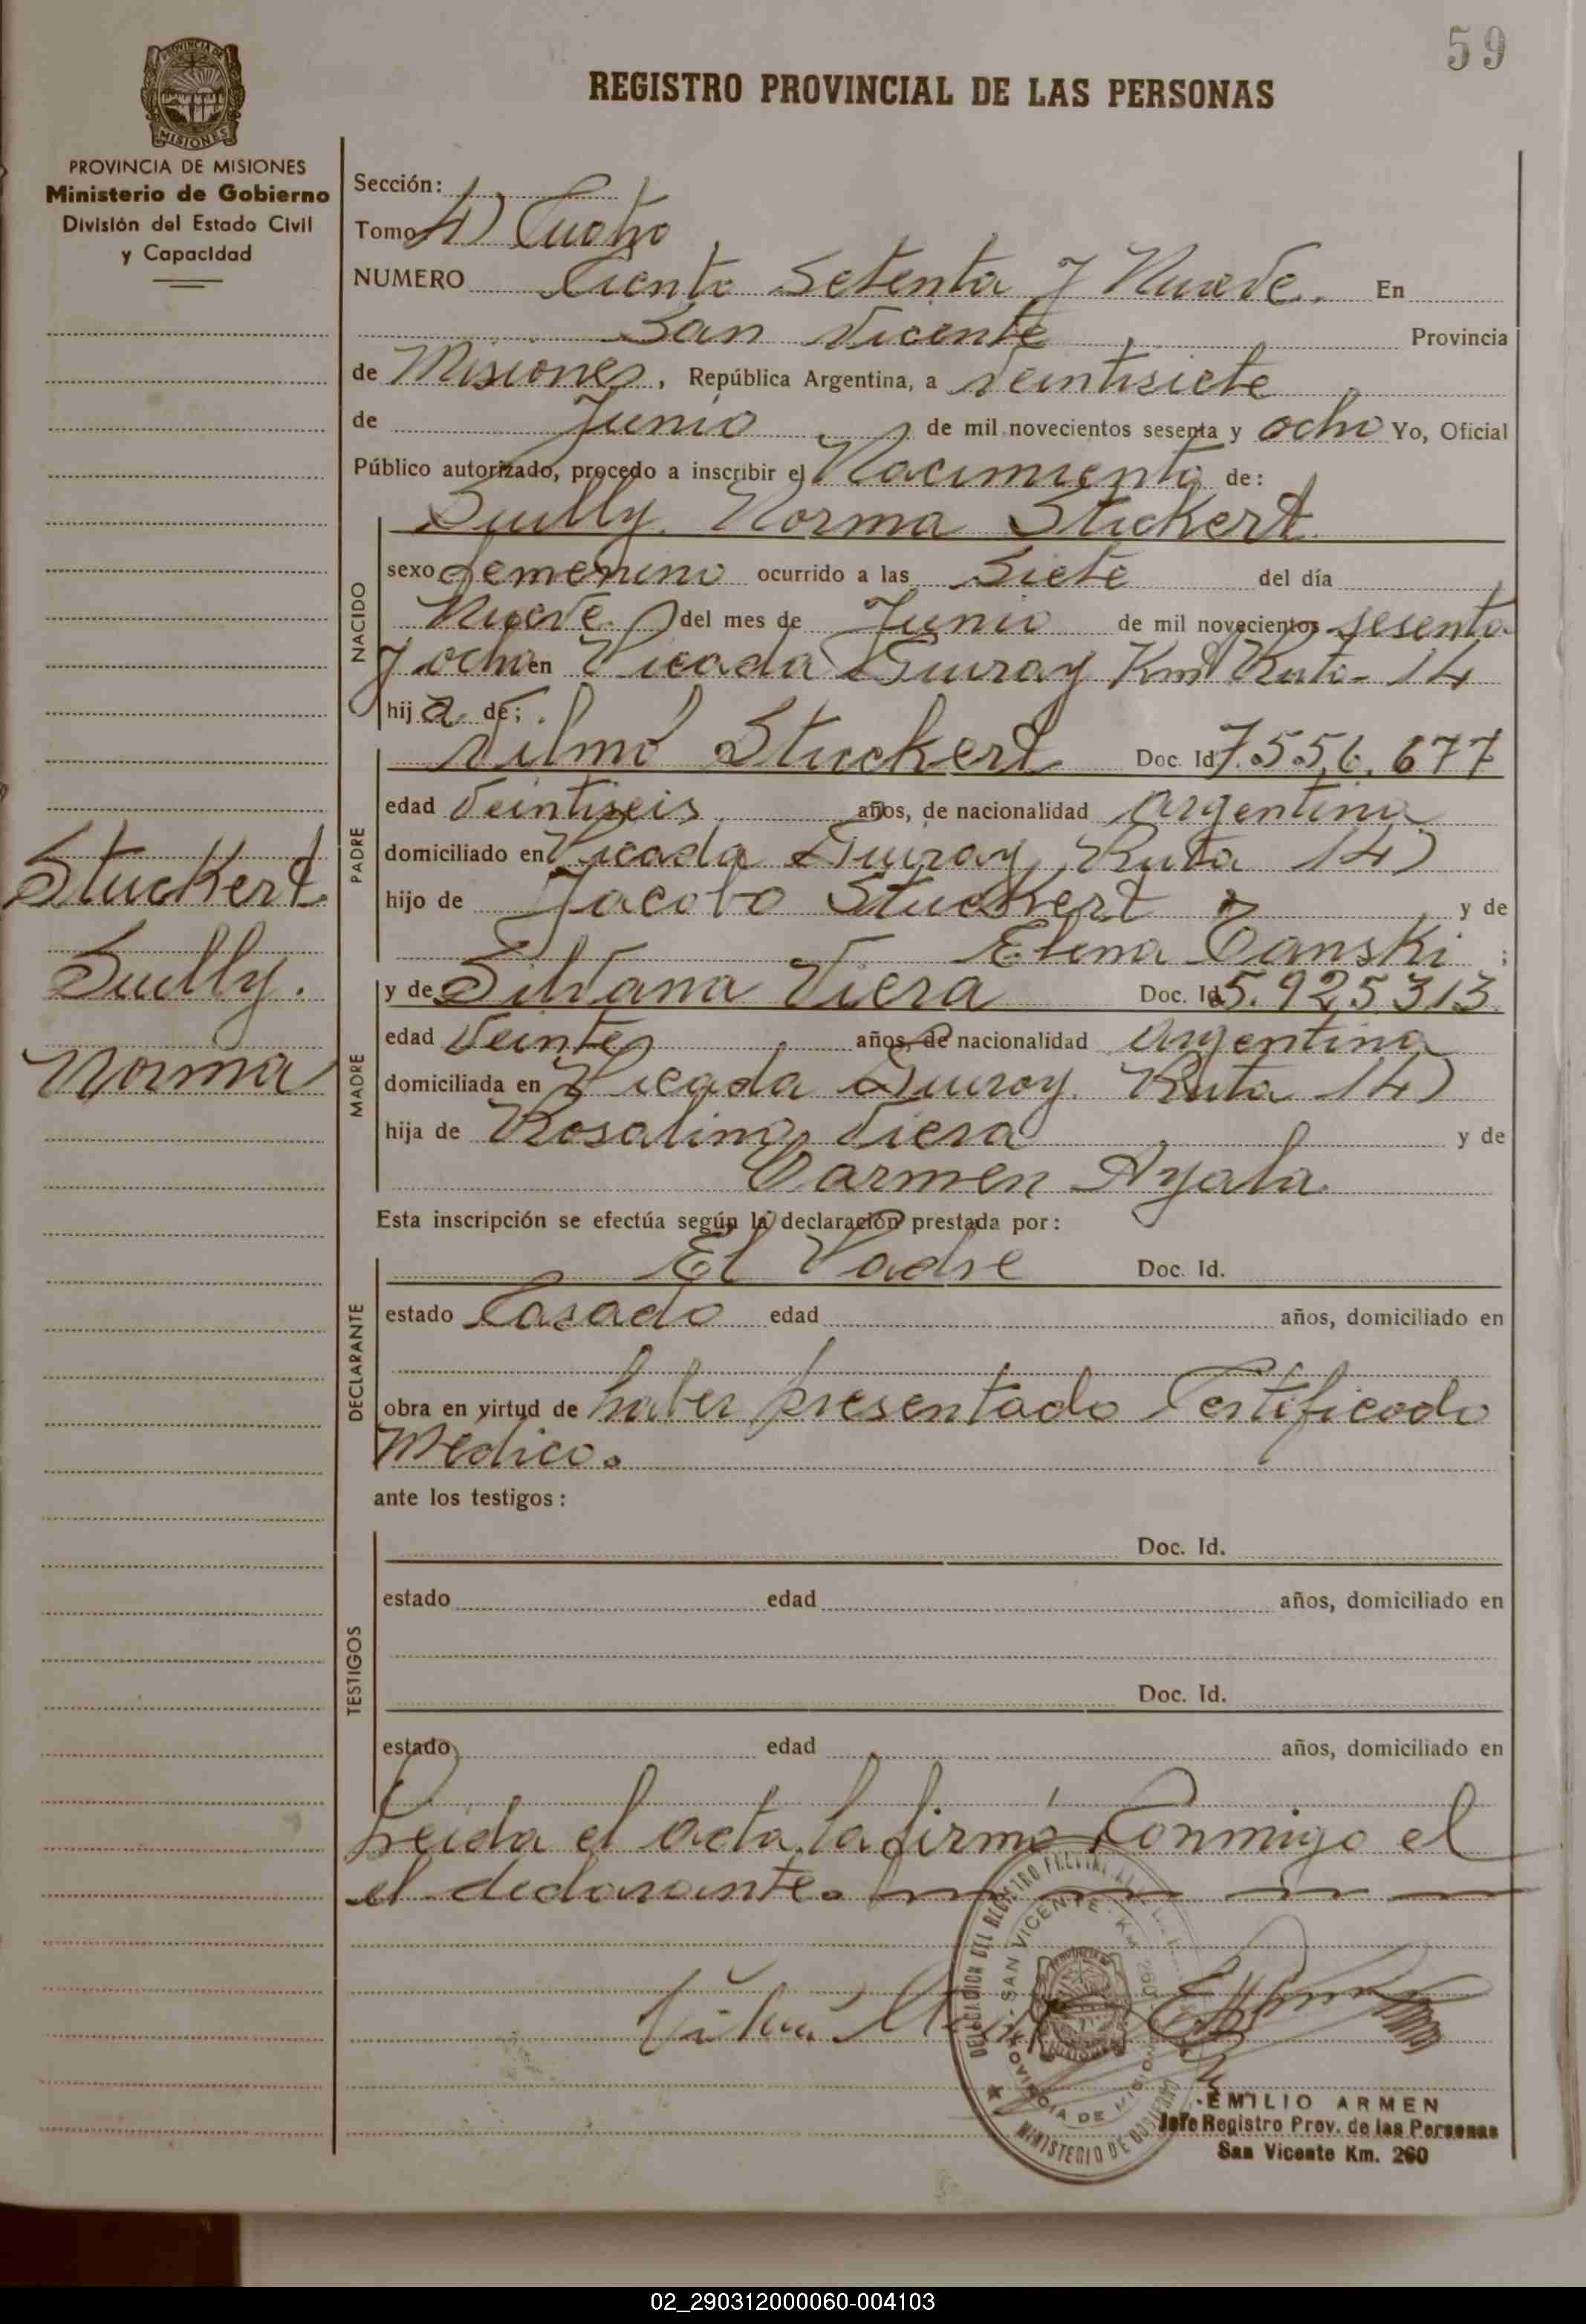 59
REGISTRO PROVINCIAL DE LAS PERSONAS
PROVINCIA DE
MISIONES
PROVINCIA DE MISIONES
Ministerio de Gobierno
División del Estado Civil
y Capacidad
Sección:
Tomo 4) Cuatro
NUMERO Ciento Setenta y Nueve. En
San Vicente Provincia
de Misiones, República Argentina, a veintisiete
de Junio de mil novecientos sesenta y ocho Yo, Oficial
Público autorizado, procedo a inscribir el Nacimiento de:
Suilly Norma Stuckert
NACIDO
sexo femenino ocurrido a las Siete del día
Nueve del mes de Junio de mil novecientos sesenta
y ocho en Picada Guiray Km Ruta 14
hija de:
PADRE
Vilmo Stuckert Doc. Id 7.556.677
edad Veintiseis años, de nacionalidad Argentina
domiciliado en Picada Guiray Ruta 14)
hijo de Jacobo Stuckert y de
Elena Canski ;
MADRE
y de Silvana Viera Doc. Id 5.925313
edad Veinte años, de nacionalidad Argentina
domiciliada en Picada Guiray. Ruta 14)
hija de Rosalino Viera y de
Carmen Ayala.
Esta inscripción se efectúa según la declaración prestada por:
DECLARANTE
El Padre Doc. Id.
estado Casado edad años, domiciliado en
obra en virtud de haber presentado Certificado
Medico.
ante los testigos:
TESTIGOS
Doc. Id.
estado edad años, domiciliado en
Doc. Id.
estado edad años, domiciliado en
Leida el acta, la firmó Conmigo el
el declarante.
Stuckert
Suilly.
Norma
DELEGACION DEL REGISTRO
SAN VICENTE - KM 260
PROVINCIA DE MISIONES
MINISTERIO DE GOBIERNO
EMILIO ARMEN
Jefe Registro Prov. de las Personas
San Vicente Km. 260
02_290312000060-004103